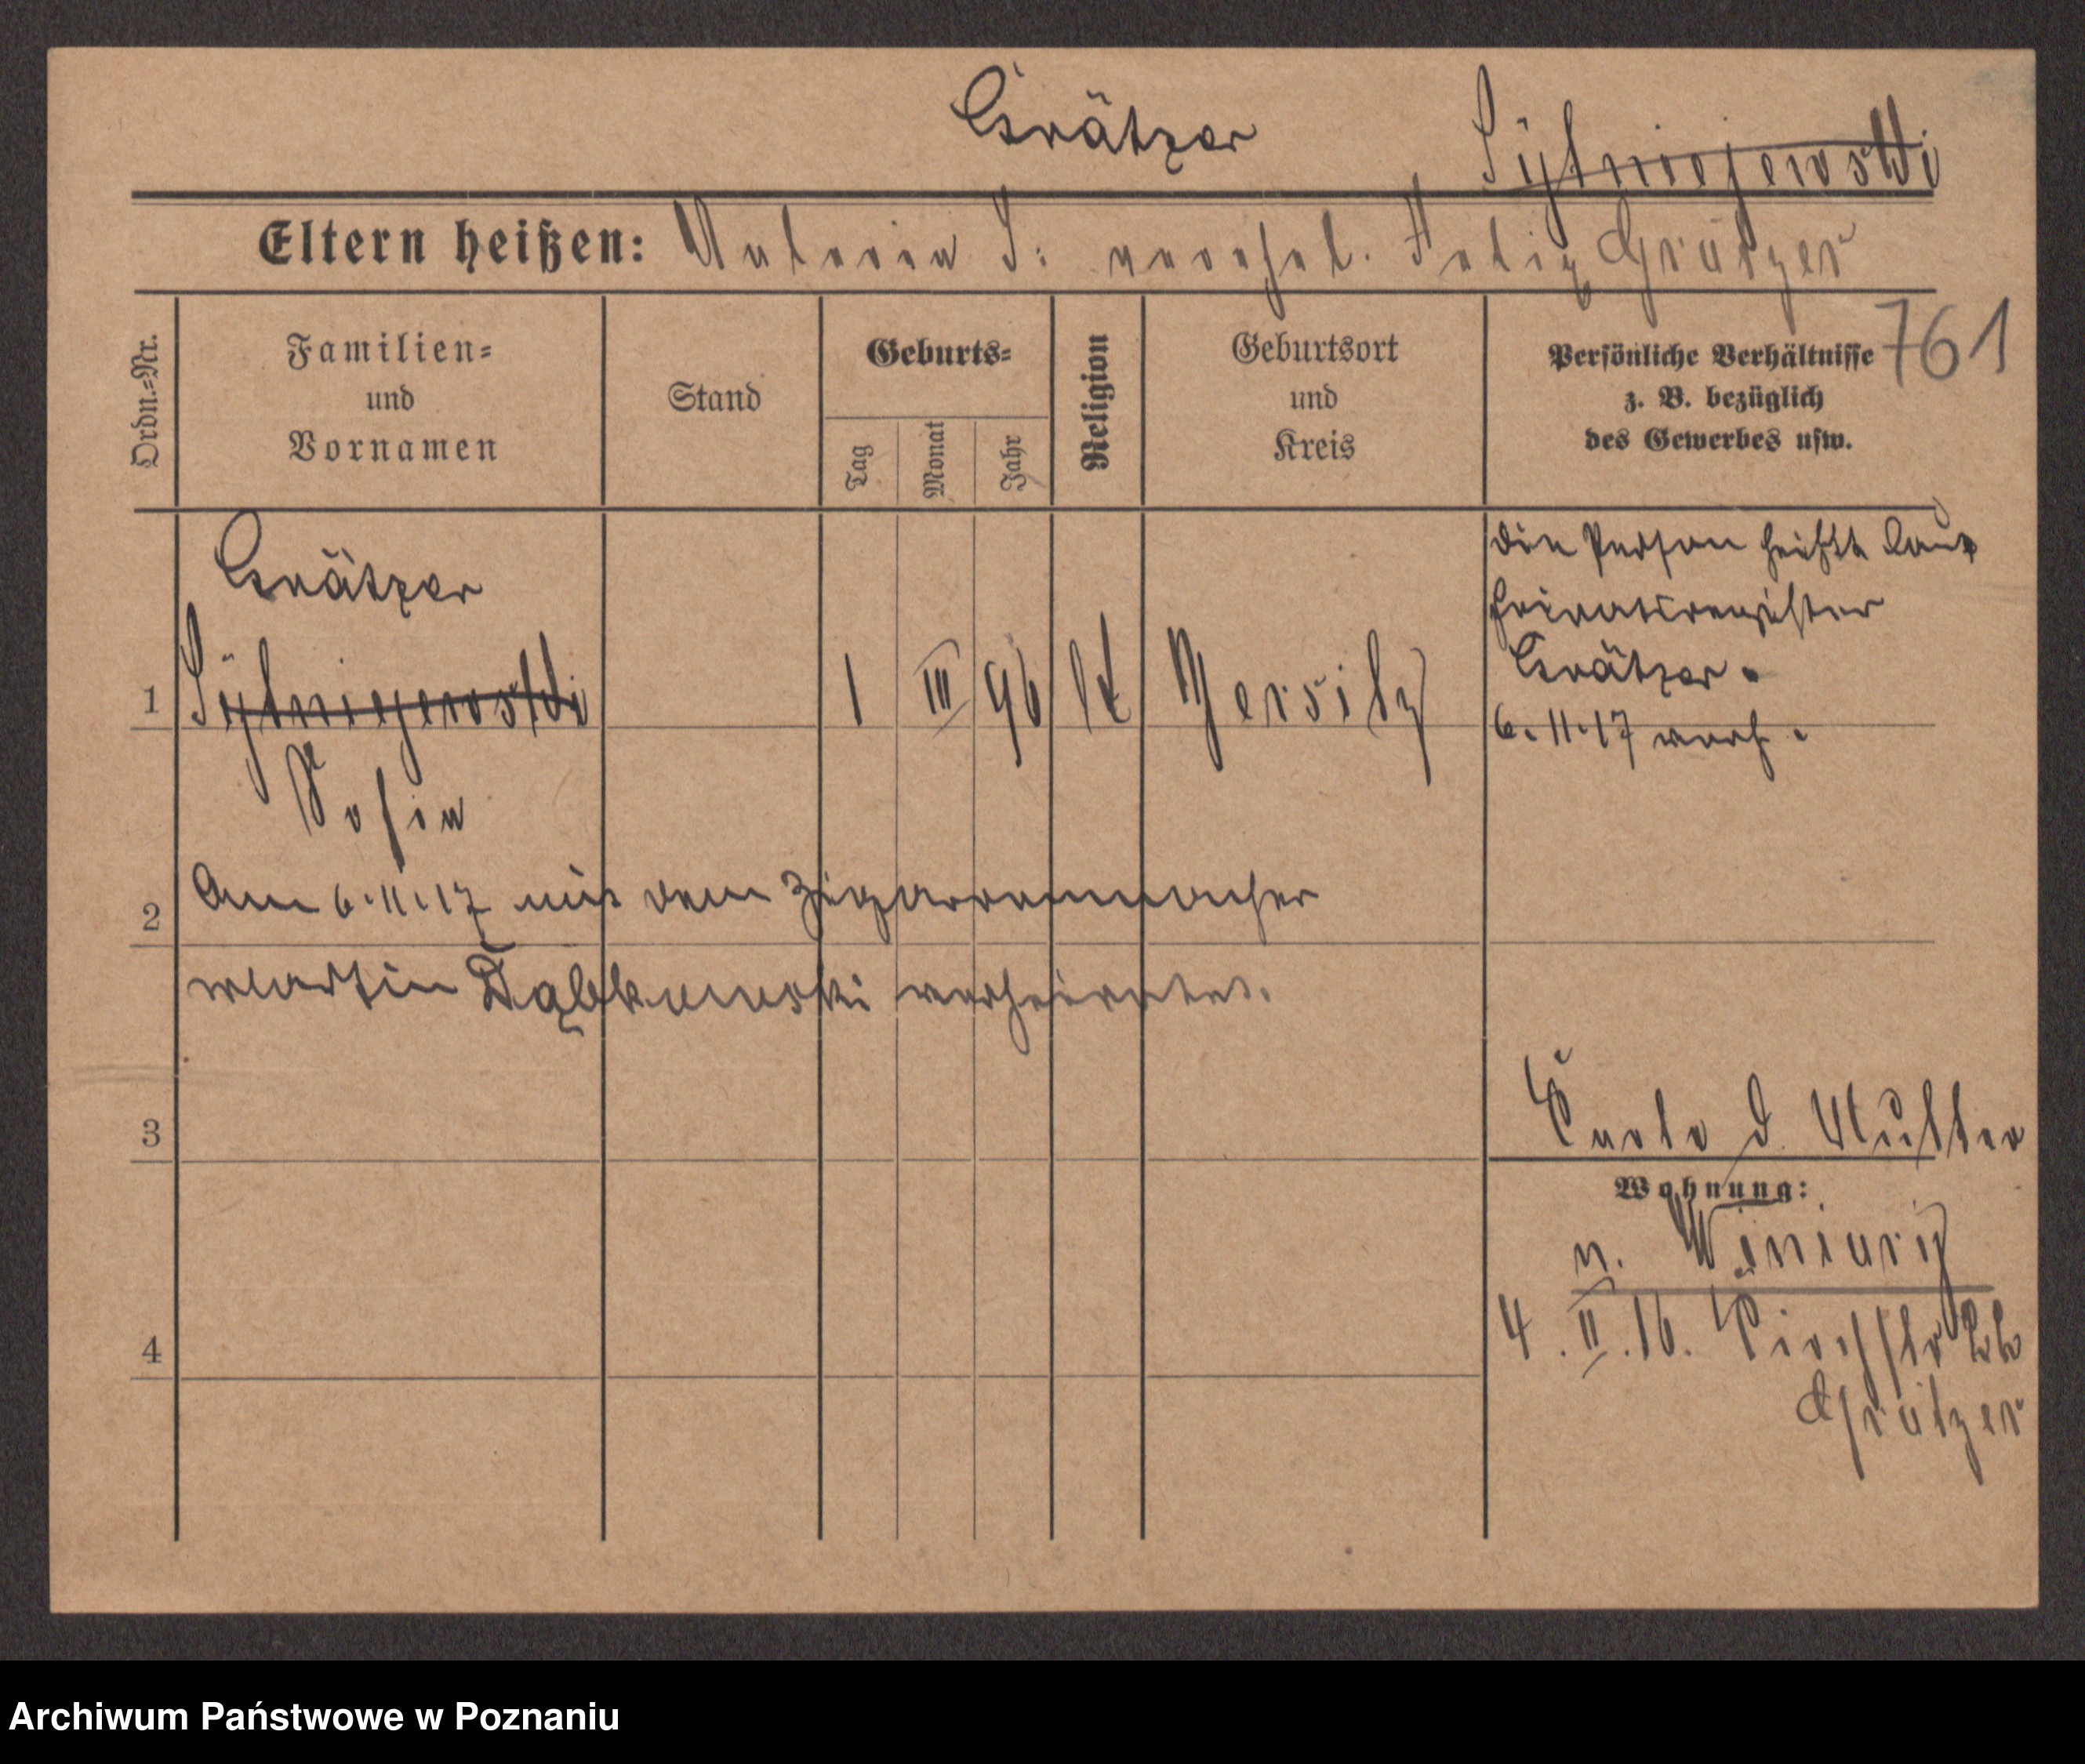 Grätzer Sytniejewski
Eltern heißen: Antonia S: verehel. Felix Grätzer
761
Ordn.=Nr.
Familien=
und
Vornamen
Stand
Geburts=
Tag
Monat
Jahr
Religion
Geburtsort
und
Kreis
Persönliche Verhältnisse
z. B. bezüglich
des Gewerbes usw.
Grätzer
1 Sytniejewski 1 III 96 kt Jersitz
Sofia
die Person heißt laut
Heiratsregister
Grätzer.
6.11.17 verh.
2 Am 6.11.17 mit dem Zigarrenmacher
Martin Dąbkowski verheiratet.
3
Karte d. Mutter
Wohnung:
n. Winiary
4
4.II.16. Kirchstr
Grätzer
Archiwum Państwowe w Poznaniu